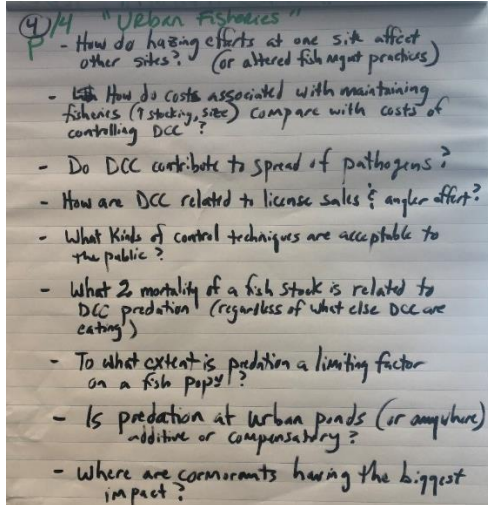 ④/4 "Urban Fisheries"
P - How do hazing efforts at one site affect
other sites? (or altered fish mgmt practices)
- How do costs associated with maintaining
fisheries (↑ stocking, size) compare with costs of
controlling DCC?
- Do DCC contribute to spread of pathogens?
- How are DCC related to license sales & angler effort?
- What kinds of control techniques are acceptable to
the public?
- What % mortality of a fish stock is related to
DCC predation (regardless of what else DCC are
eating)
- To what extent is predation a limiting factor
on a fish popn?
- Is predation at urban ponds (or anywhere)
additive or compensatory?
- Where are cormorants having the biggest
impact?